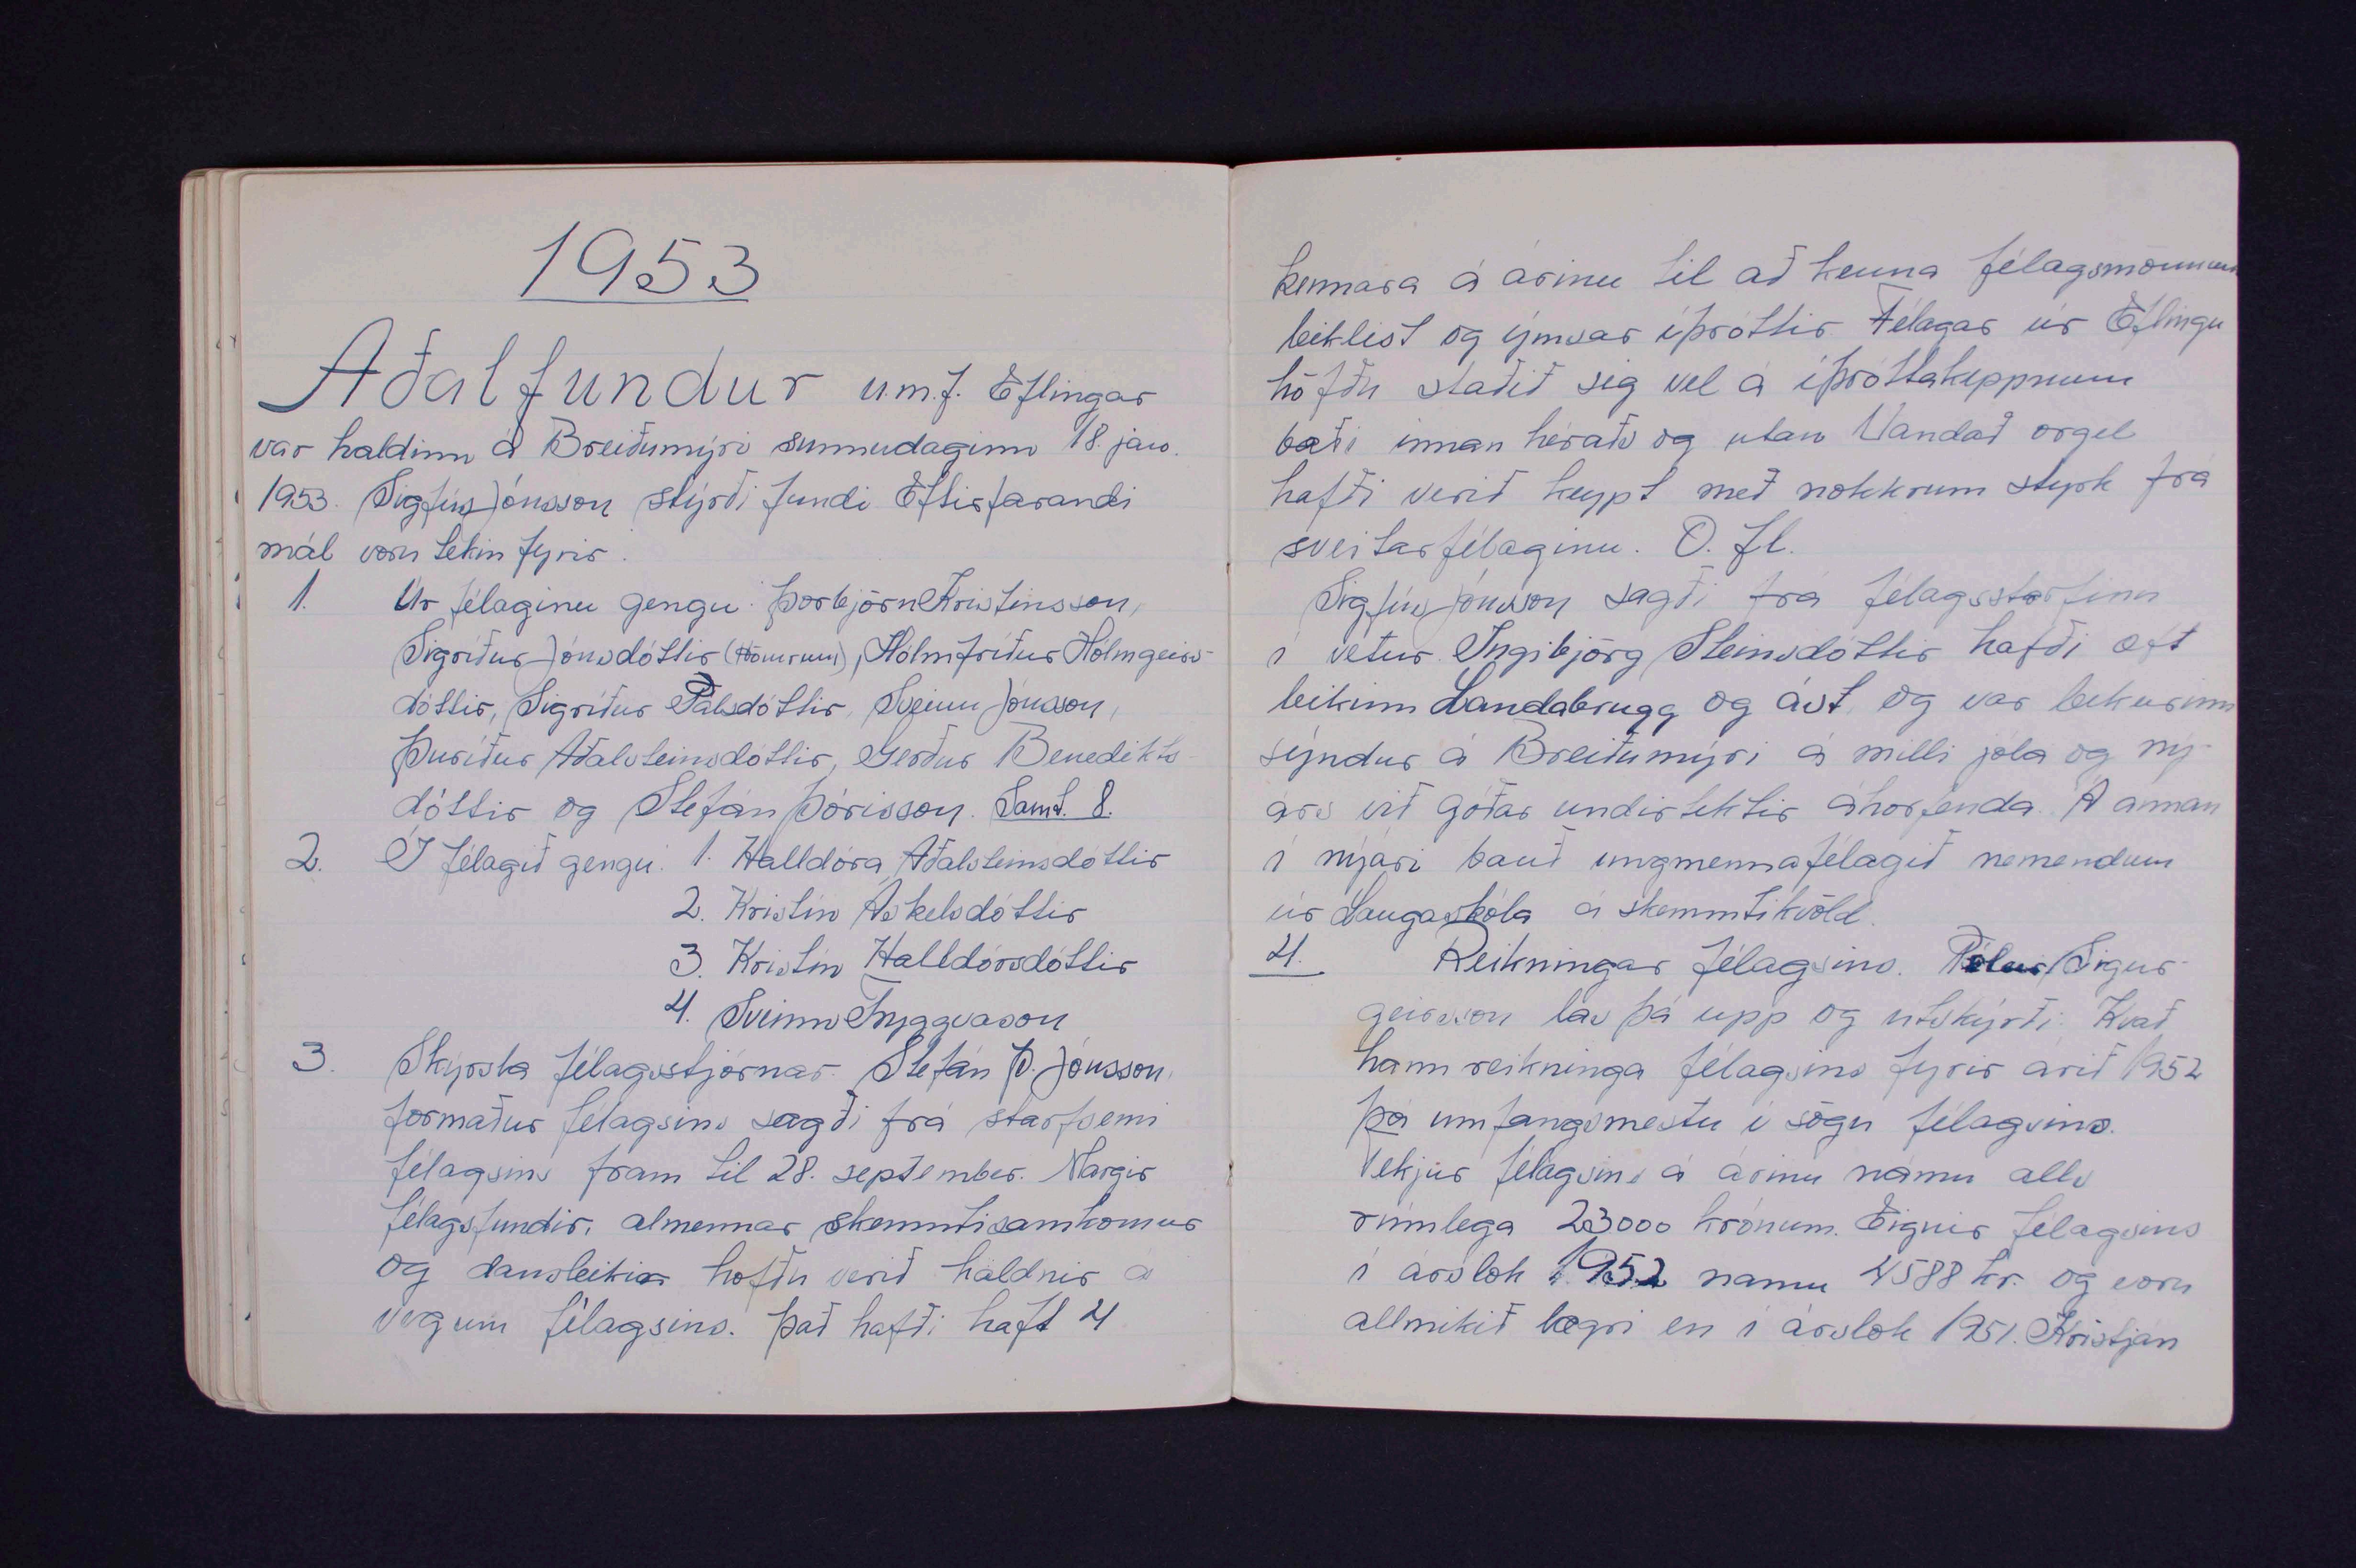 1953
Aðalfundur u.m.f. Eflingar
var haldinn á Breiðumýri sunnudaginn 18. jan.
1953. Sigfús Jónsson stýrði fundi Eftirfarandi
mál voru tekin fyrir.
1. Úr félaginu gengu: Þorbjörn Kristinsson,
Sigríður Jónsdóttir (Hömrum), Hólmfríður Hólmgeirs-
dóttir, Sigríður Pálsdóttir, Sveinn Jónsson,
Þuríður Aðalsteinsdóttir, Gerður Benedikts-
dóttir og Stefán Þórisson. Samt. 8.
2. Í félagið gengu: 1. Halldóra Aðalsteinsdóttir
2. Kristín Áskelsdóttir
3. Kristín Halldórsdóttir
4. Sveinn Tryggvason
3. Skýrsla félagsstjórnar. Stefán Þ. Jónsson,
formaður félagsins sagði frá starfsemi
félagsins fram til 28. september. Margir
félagsfundir, almennar skemmtisamkomur
og dansleikir höfðu verið haldnir á
vegum félagsins. Það hafði haft 4
kennara á árinu til að kenna félagsmönnum
leiklist og ýmsar íþróttir Félagar úr Eflingu
höfðu staðið sig vel á íþróttakeppnum
bæði innan héraðs og utan Vandað orgel
hafði verið keypt með nokkrum styrk frá
sveitarfélaginu. O. fl.
Sigfús Jónsson sagði frá félagsstarfinu
í vetur. Ingibjörg Steinsdóttir hafði æft
leikinn Landabrugg og ást, og var leikurinn
sýndur á Breiðumýri á milli jóla og ný-
árs við góðar undirtektir áhorfenda. Á annan
í nýári bauð ungmennafélagið nemendum
úr Laugaskóla á skemmtikvöld.
4. Reikningar félagsins. Pétur Sigur-
geirsson las þá upp og útskýrði. Kvað
hann reikninga félagsins fyrir árið 1952
þá umfangsmestu í sögu félagsins.
Tekjur félagsins á árinu námu alls
rúmlega 23000 krónum. Eignir félagsins
í árslok 1952 námu 4588 kr. og voru
allmikið lægri en í árslok 1951. Kristján